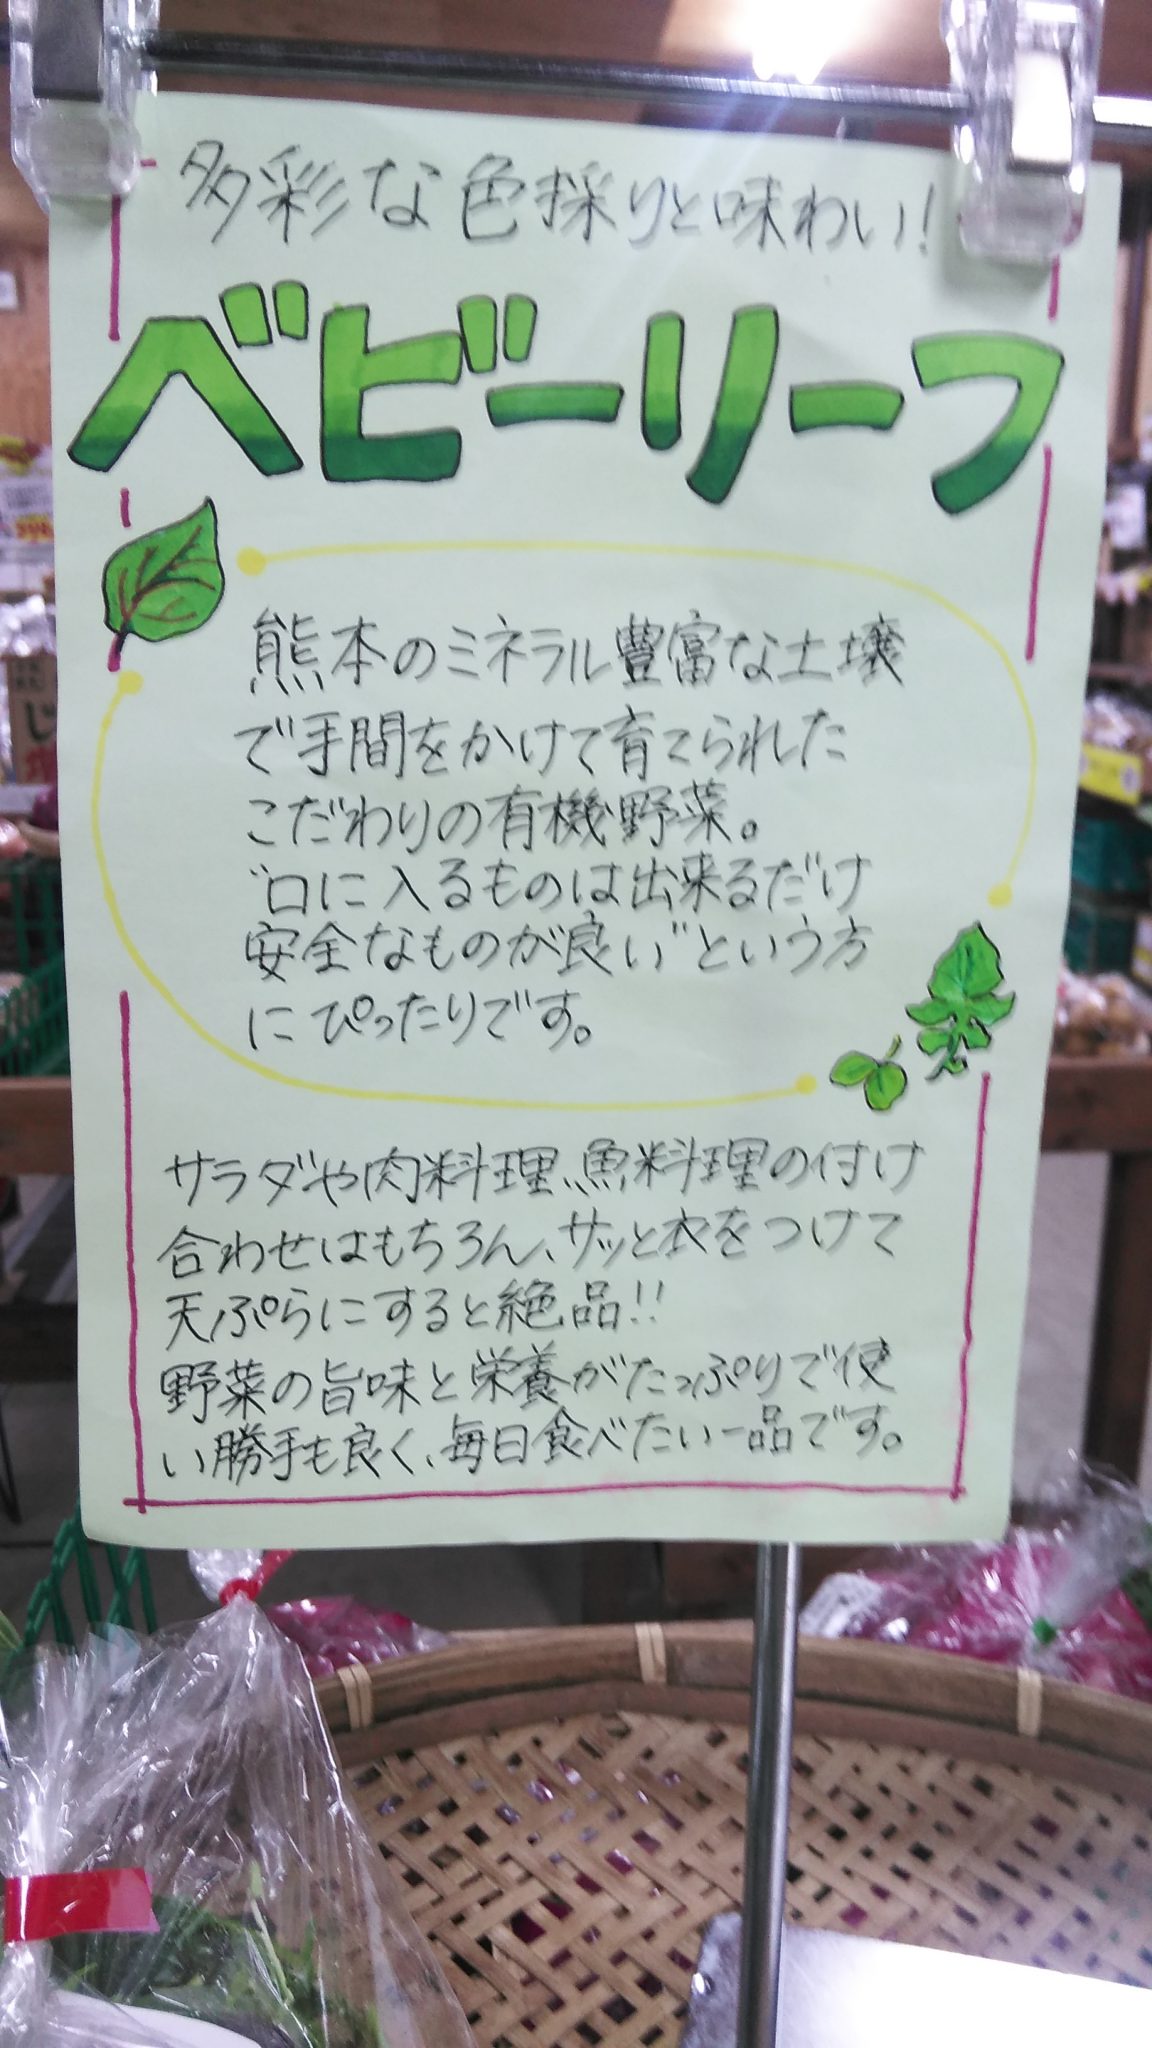 多彩な色採りと味わい!
ベビーリーフ
熊本のミネラル豊富な土壌
で手間をかけて育てられた
こだわりの有機野菜。
"口に入るものは出来るだけ
安全なものが良い"という方
にぴったりです。
サラダや肉料理、魚料理の付け
合わせはもちろん、サッと衣をつけて
天ぷらにすると絶品!!
野菜の旨味と栄養がたっぷりで使
い勝手も良く、毎日食べたい一品です。